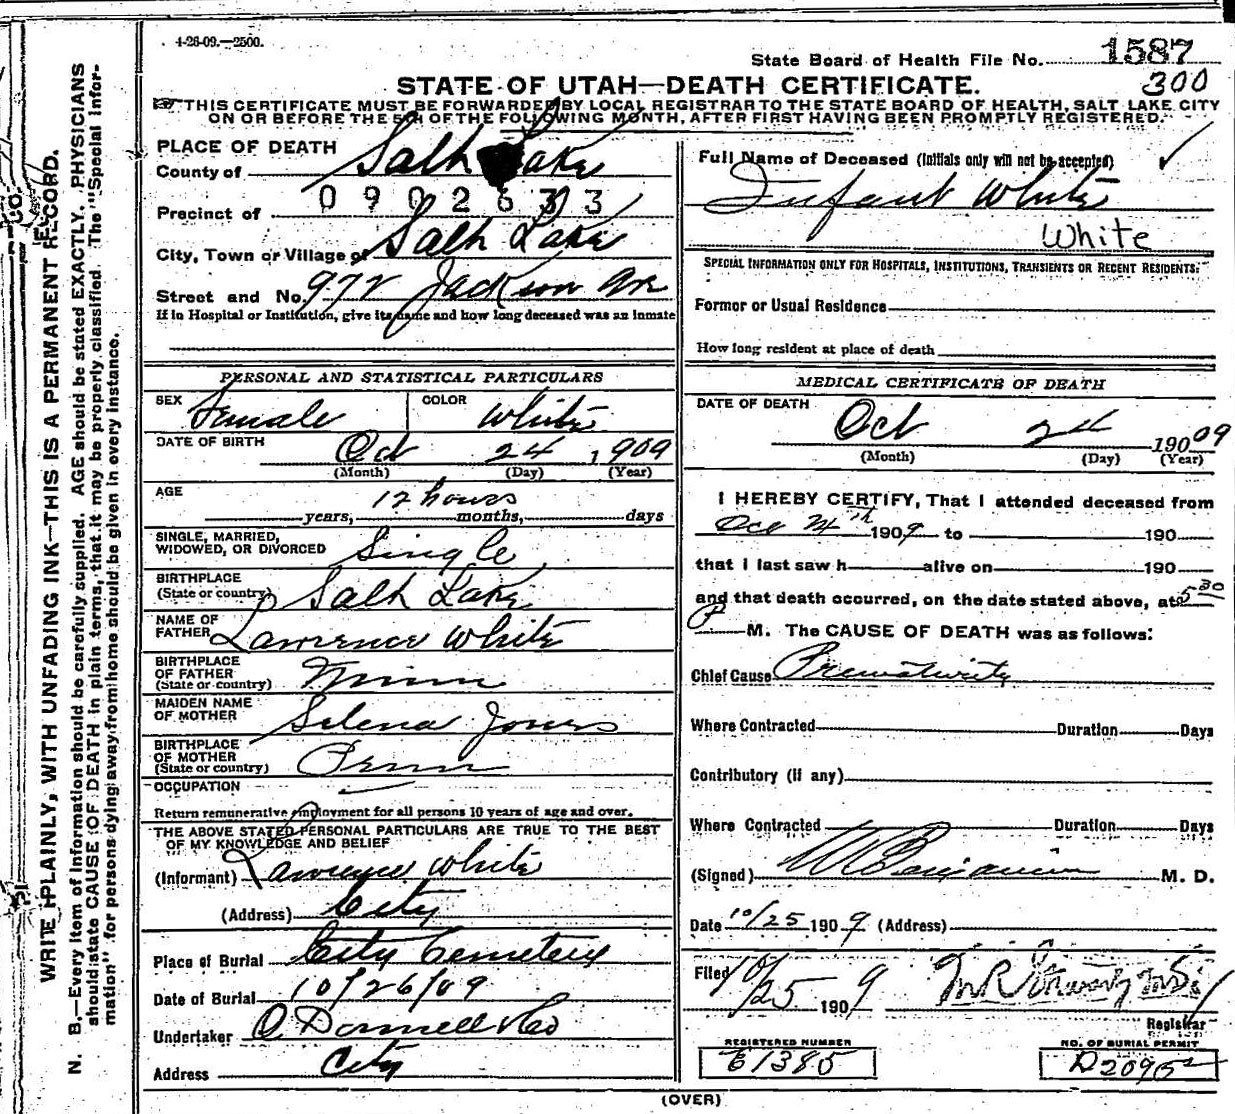 4-26-09.—2500.
State Board of Health File No. 1587
300
STATE OF UTAH—DEATH CERTIFICATE.
THIS CERTIFICATE MUST BE FORWARDED BY LOCAL REGISTRAR TO THE STATE BOARD OF HEALTH, SALT LAKE CITY
ON OR BEFORE THE 5TH OF THE FOLLOWING MONTH, AFTER FIRST HAVING BEEN PROMPTLY REGISTERED.
PLACE OF DEATH
County of Salt Lake
0902633
Precinct of
City, Town or Village of Salt Lake
Street and No. 972 Jackson Ave
If in Hospital or Institution, give its name and how long deceased was an inmate
Full Name of Deceased (Initials only will not be accepted)
Infant White
White
SPECIAL INFORMATION ONLY FOR HOSPITALS, INSTITUTIONS, TRANSIENTS OR RECENT RESIDENTS.
Former or Usual Residence
How long resident at place of death
PERSONAL AND STATISTICAL PARTICULARS
SEX Female COLOR White
DATE OF BIRTH Oct 24, 1909
(Month) (Day) (Year)
AGE 12 hours
years, months, days
SINGLE, MARRIED,
WIDOWED, OR DIVORCED Single
BIRTHPLACE
(State or country) Salt Lake
NAME OF
FATHER Lawrence White
BIRTHPLACE
OF FATHER
(State or country) Minn
MAIDEN NAME
OF MOTHER Selena Jones
BIRTHPLACE
OF MOTHER
(State or country) Penn
OCCUPATION
Return remunerative employment for all persons 10 years of age and over.
THE ABOVE STATED PERSONAL PARTICULARS ARE TRUE TO THE BEST
OF MY KNOWLEDGE AND BELIEF
(Informant) Lawrence White
(Address) City
Place of Burial City Cemetery
Date of Burial 10/26/09
Undertaker O Donnell & Co
Address City
MEDICAL CERTIFICATE OF DEATH
DATE OF DEATH
Oct 24 190 09
(Month) (Day) (Year)
I HEREBY CERTIFY, That I attended deceased from
Oct 24th 1909 to 190
that I last saw h alive on 190
and that death occurred, on the date stated above, at 5 30
P M. The CAUSE OF DEATH was as follows:
Chief Cause Prematurity
Where Contracted Duration Days
Contributory (if any)
Where Contracted Duration Days
(Signed) Benjamin M. D.
Date 10/25 1909 (Address)
Filed 10/25 1909
Registrar
REGISTERED NUMBER
E1385
NO. OF BURIAL PERMIT
D2095
(OVER)
WRITE PLAINLY, WITH UNFADING INK—THIS IS A PERMANENT RECORD.
N. B.—Every item of information should be carefully supplied. AGE should be stated EXACTLY. PHYSICIANS
should state CAUSE OF DEATH in plain terms, that it may be properly classified. The "Special Infor-
mation" for persons dying away from home should be given in every instance.